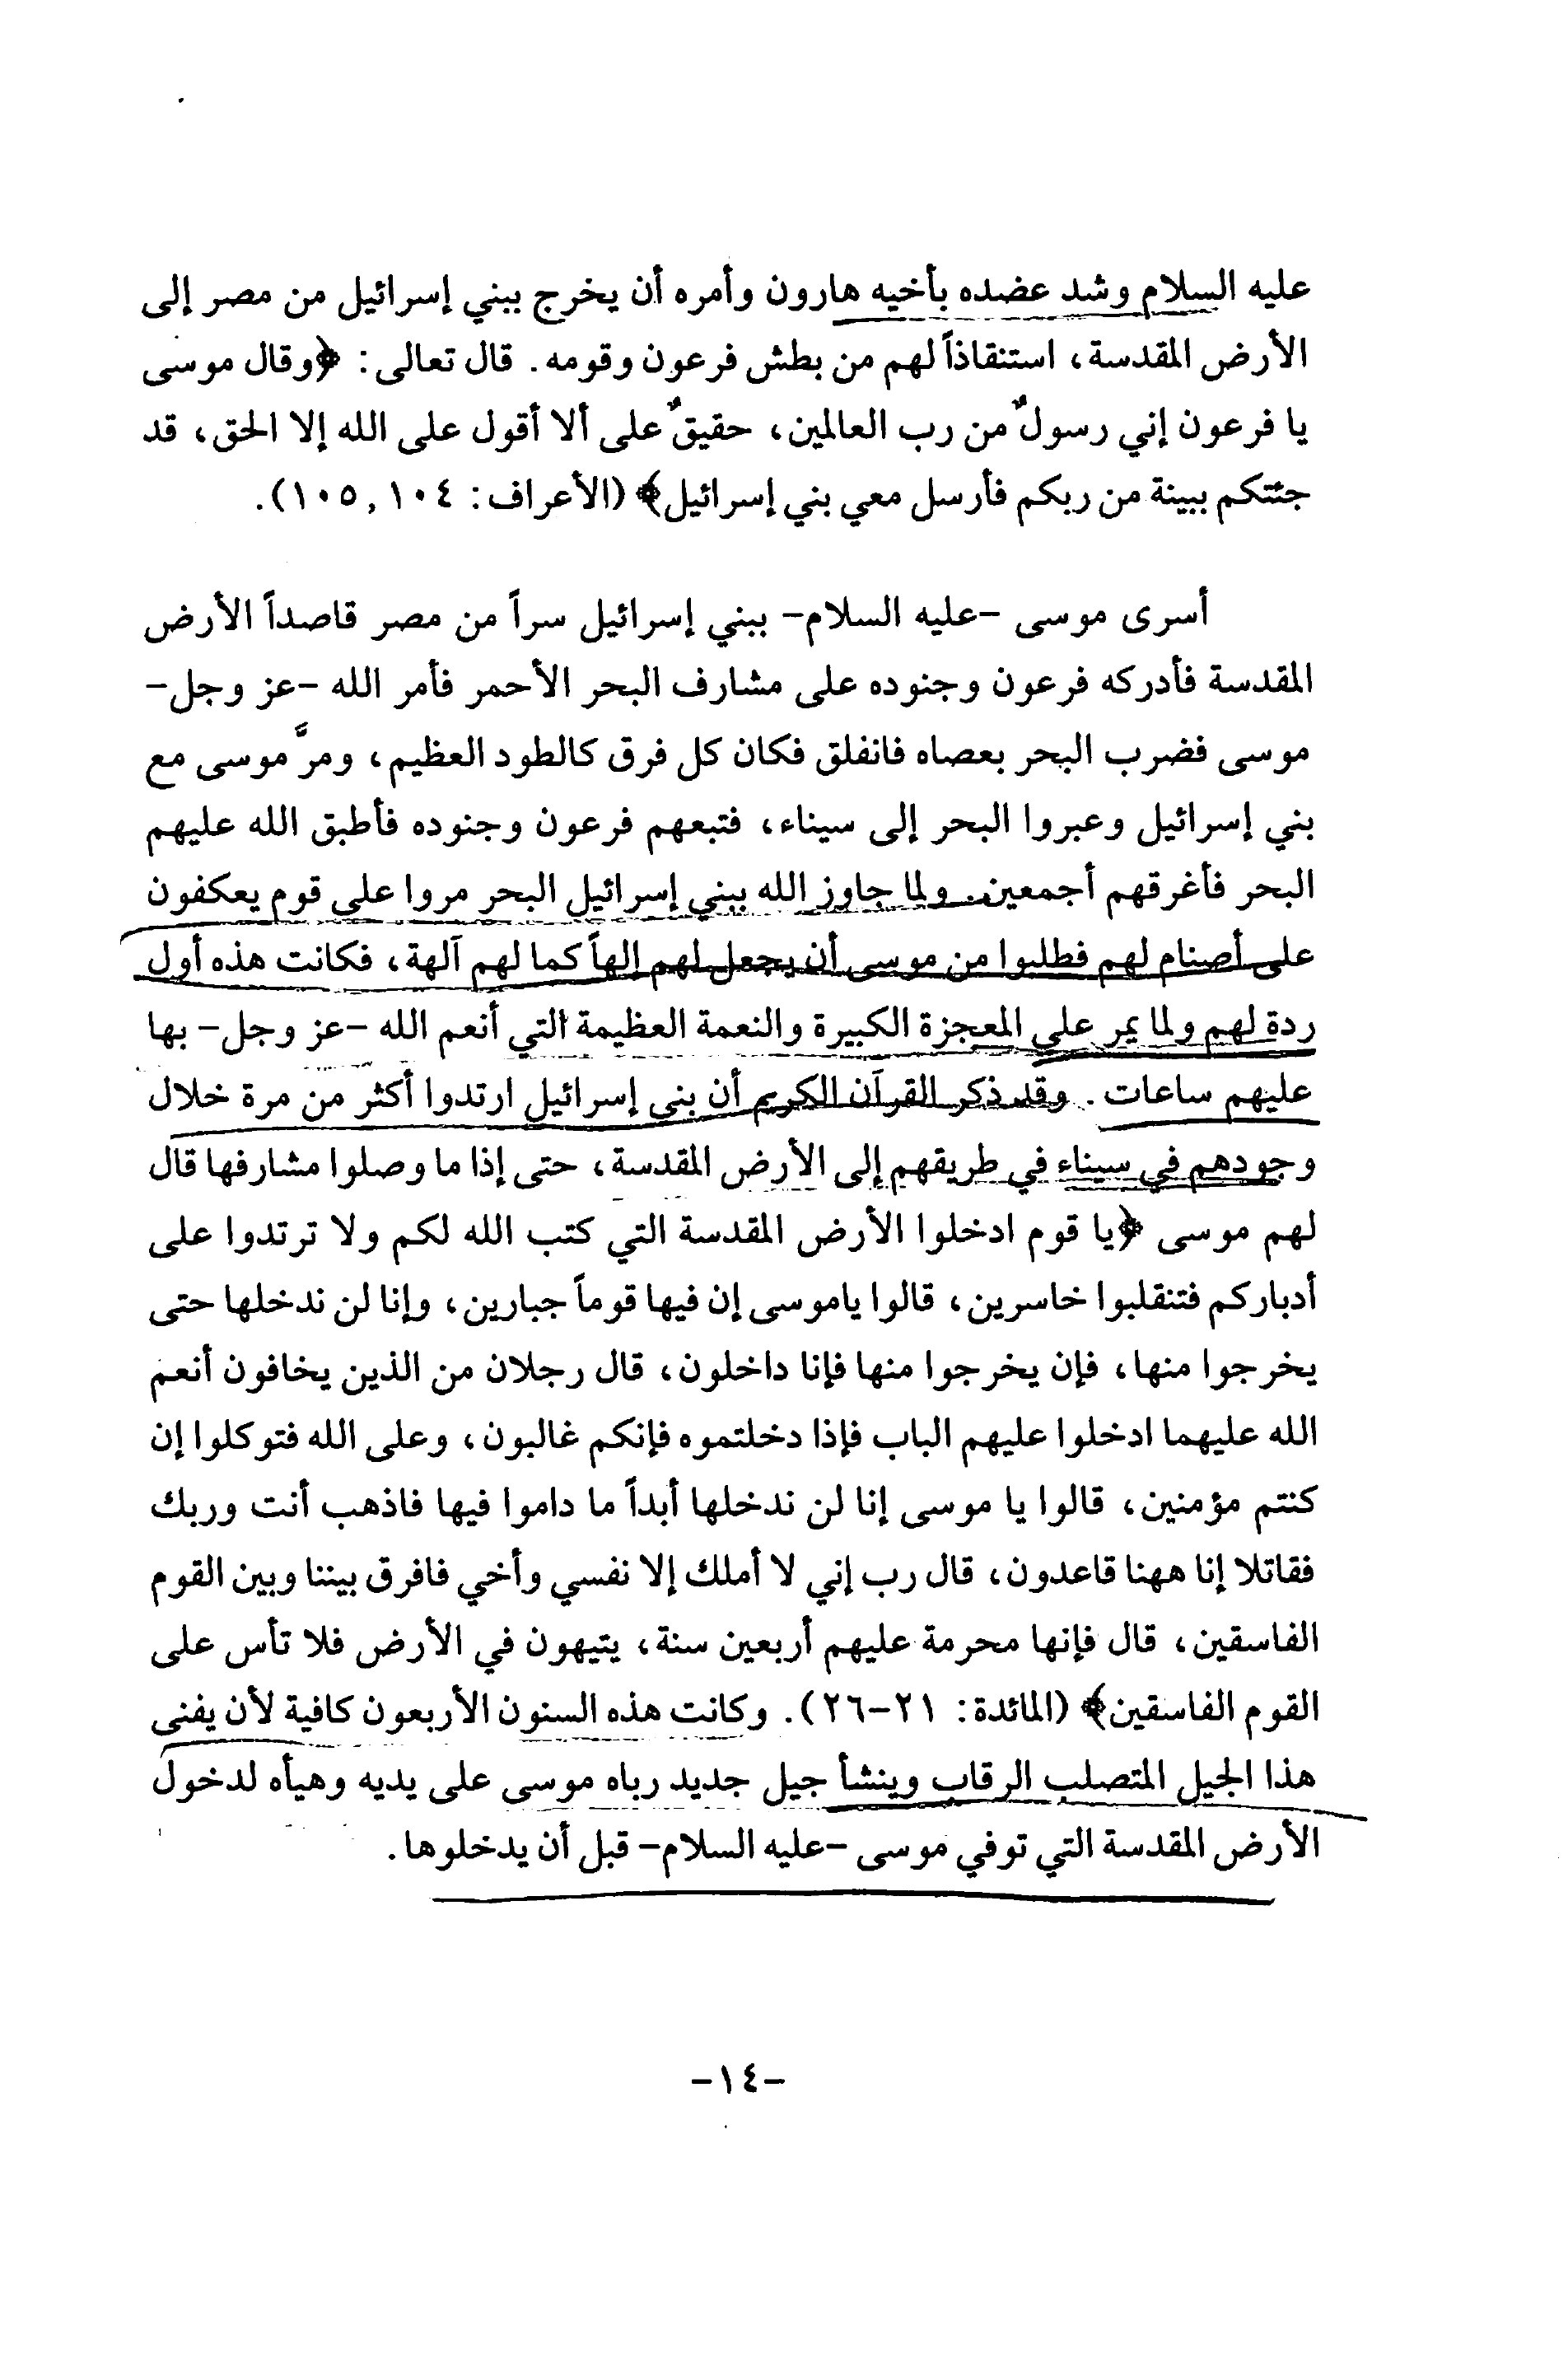 عليه السلام وشد عضده بأخيه هارون وأمره أن يخرج ببني إسرائيل من مصر إلى
الأرض المقدسة، استنقاذاً لهم من بطش فرعون وقومه. قال تعالى: ﴿وقال موسى
يا فرعون إني رسولٌ من رب العالمين، حقيقٌ على ألا أقول على الله إلا الحق، قد
جئتكم ببينة من ربكم فأرسل معي بني إسرائيل﴾ (الأعراف: ١٠٤, ١٠٥).
أسرى موسى -عليه السلام- ببني إسرائيل سراً من مصر قاصداً الأرض
المقدسة فأدركه فرعون وجنوده على مشارف البحر الأحمر فأمر الله -عز وجل-
موسى فضرب البحر بعصاه فانفلق فكان كل فرق كالطود العظيم، ومرَّ موسى مع
بني إسرائيل وعبروا البحر إلى سيناء، فتبعهم فرعون وجنوده فأطبق الله عليهم
البحر فأغرقهم أجمعين.. ولما جاوز الله ببني إسرائيل البحر مروا على قوم يعكفون
على أصنام لهم فطلبوا من موسى أن يجعل لهم إلهاً كما لهم آلهة، فكانت هذه أول
ردة لهم ولما يمر على المعجزة الكبيرة والنعمة العظيمة التي أنعم الله -عز وجل- بها
عليهم ساعات. وقد ذكر القرآن الكريم أن بني إسرائيل ارتدوا أكثر من مرة خلال
وجودهم في سيناء في طريقهم إلى الأرض المقدسة، حتى إذا ما وصلوا مشارفها قال
لهم موسى ﴿يا قوم ادخلوا الأرض المقدسة التي كتب الله لكم ولا ترتدوا على
أدباركم فتنقلبوا خاسرين، قالوا ياموسى إن فيها قوماً جبارين، وإنا لن ندخلها حتى
يخرجوا منها، فإن يخرجوا منها فإنا داخلون، قال رجلان من الذين يخافون أنعم
الله عليهما ادخلوا عليهم الباب فإذا دخلتموه فإنكم غالبون، وعلى الله فتوكلوا إن
كنتم مؤمنين، قالوا يا موسى إنا لن ندخلها أبداً ما داموا فيها فاذهب أنت وربك
فقاتلا إنا ههنا قاعدون، قال رب إني لا أملك إلا نفسي وأخي فافرق بيننا وبين القوم
الفاسقين، قال فإنها محرمة عليهم أربعين سنة، يتيهون في الأرض فلا تأس على
القوم الفاسقين﴾ (المائدة: ٢١-٢٦). وكانت هذه السنون الأربعون كافية لأن يفنى
هذا الجيل المتصلب الرقاب وينشأ جيل جديد رباه موسى على يديه وهيأه لدخول
الأرض المقدسة التي توفي موسى -عليه السلام- قبل أن يدخلوها.
-١٤-